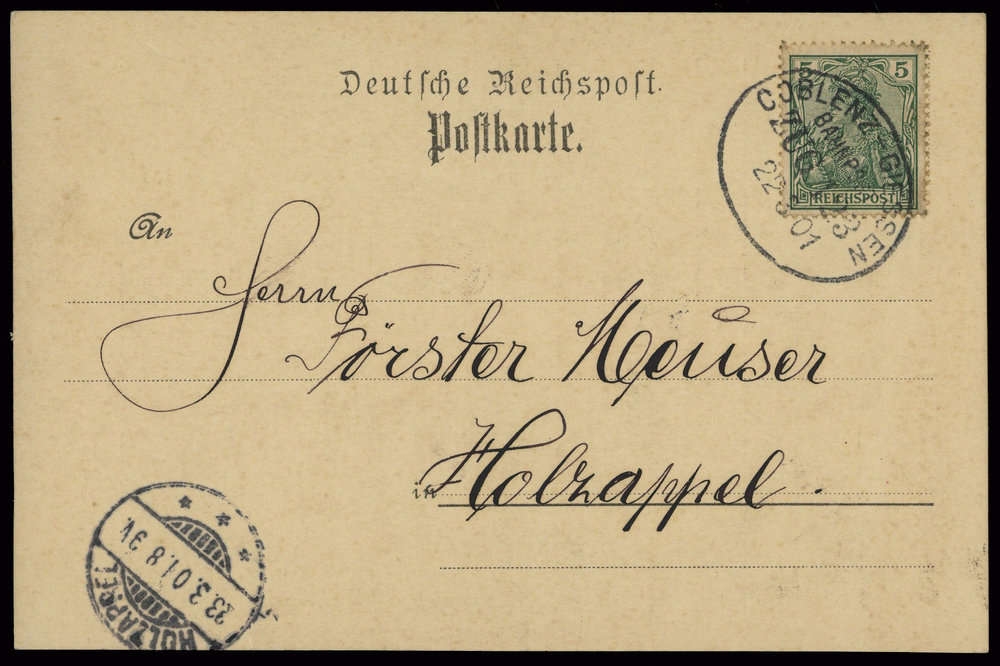 Deutsche Reichspost.
Postkarte.
5 5
REICHSPOST
COBLENZ - GIESSEN
ZUG
22 3 01
An
Herrn
Förster Heuser
in Holzappel.
HOLZAPPEL
23.3.01.8-9V.